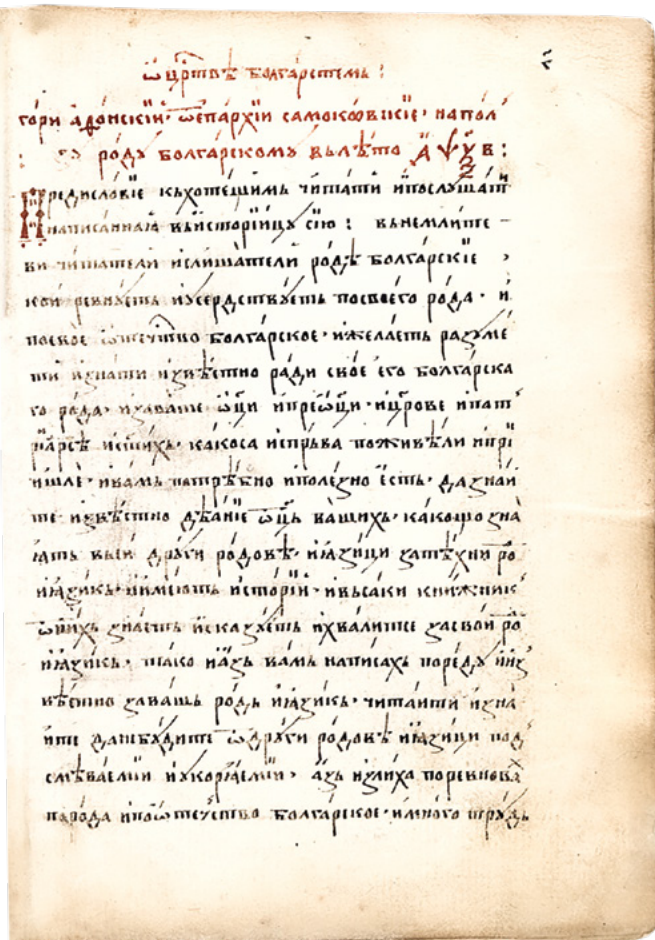 ѡ҆ црⷭ҇твѣ болгарстемь :
гори аѳо́нскїи· ѿ епархїи самоковⸯскїе· на пол
зꙋ родꙋ болгарскомꙋ вь лѣто ҂аѱѯв :
Предисловїе кь хотещимь чи́тати и҆ послꙋшати
написаннаꙗ вь и҆сторїицꙋ сїю : вьнемлите
ви читатели и҆ слишатели ро́дѣ болга́рскїе
кои ревнꙋеть и҆ ꙋсердствꙋеть по своего ро́да· и҆
по свое ѿтечⷭ҇тво болга́рское· и҆ желаеть разꙋме
ти и҆ знати и҆звѣстно ра́ди свое его болга́рска
го ро́да· и҆ ѡ҆ци и҆ преѡ҆ци· и҆ црове и҆ пат
рїа́рсѣ и҆ стихь· како са и҆спрьва поживѣли и҆ прї
ишле· и҆ вамь потрѣбно и҆ поле́зно є҆сть· да знаи
те и҆звѣстно дѣанїе ѿць вашихь· како що зна
ꙗть вьси дрꙋги ро́довѣ· и҆ ꙗзици за тѣхни ро
и҆ ꙗзикь· и҆меють и҆сторїи· и҆ вьсаки книжник
ѿ нихь знаеть и҆ сказꙋеть и҆ хвалитсе за свои ро
и҆ ꙗзикь· тако и҆ азь вамь написахь поредꙋ и҆ из
вѣстно за вашь родь и҆ ꙗзикь· читаити и҆ зна
ите да не бꙋдите ѿ дрꙋги ро́довѣ и҆ ꙗзици под
смѣваеми и҆ ꙋкорꙗеми· азь и҆злиха поревновах
по рода и҆ по ѿтечⷭ҇тво болгарское· и҆ много трꙋдь